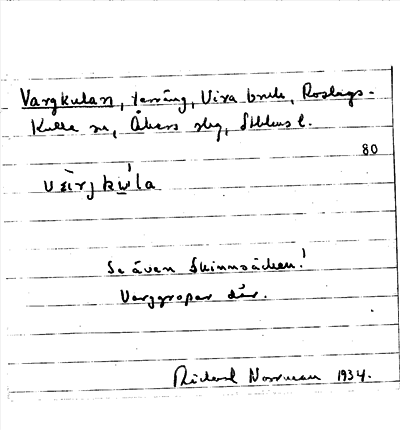 Vargkulan, terräng, Vira bruk, Roslags-
Kulla sn, Åkers slg, Sthlms l.
80
værjkula
Se även Skinnsäcken!
Varggropar där.
Richard Norrman 1934.